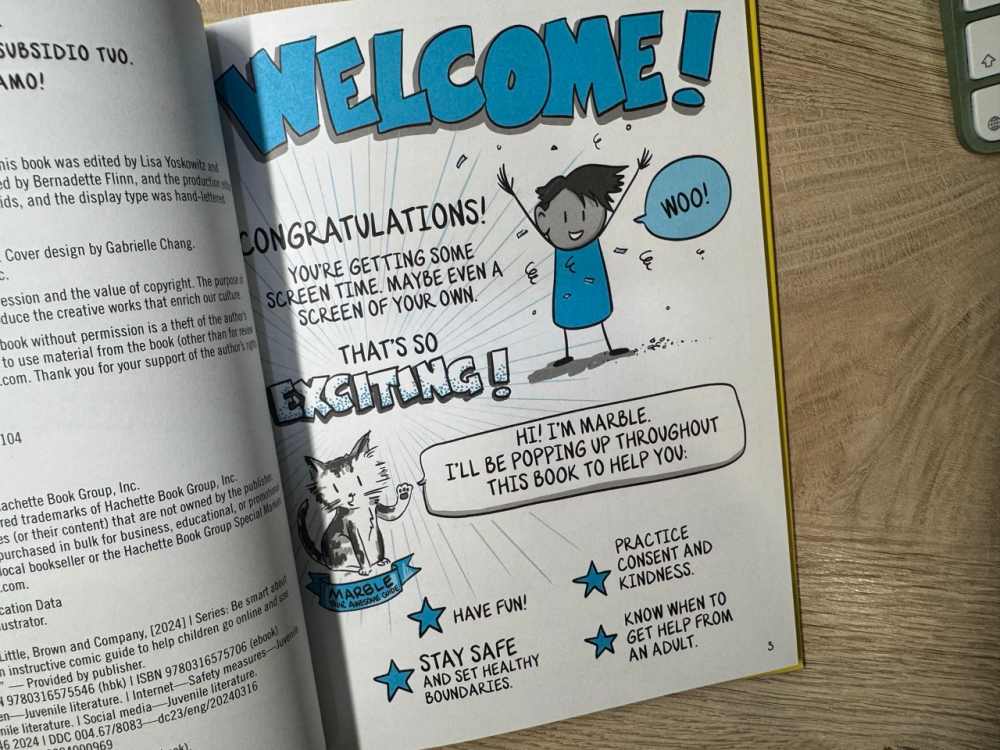 SUBSIDIO TUO.
AMO!
his book was edited by Lisa Yoskowitz and
ed by Bernadette Flinn, and the production
ids, and the display type was hand-lettered
Cover design by Gabrielle Chang.
c.
ession and the value of copyright. The purpose of
duce the creative works that enrich our culture.
book without permission is a theft of the author's
to use material from the book (other than for review
.com. Thank you for your support of the author's rights
104
Hachette Book Group, Inc.
red trademarks of Hachette Book Group, Inc.
es (or their content) that are not owned by the publisher.
purchased in bulk for business, educational, or promotional
local bookseller or the Hachette Book Group Special Markets
.com.
cation Data
ustrator.
Little, Brown and Company, [2024] | Series: Be smart about
n instructive comic guide to help children go online and use
" —Provided by publisher.
N 9780316575546 (hbk) | ISBN 9780316575706 (ebook)
en—Juvenile literature. | Internet—Safety measures—Juvenile
nile literature. | Social media—Juvenile literature.
46 2024 | DDC 004.67/8083—dc23/eng/20240316
WELCOME!
CONGRATULATIONS!
YOU'RE GETTING SOME
SCREEN TIME. MAYBE EVEN A
SCREEN OF YOUR OWN.
WOO!
THAT'S SO
EXCITING!
HI! I'M MARBLE.
I'LL BE POPPING UP THROUGHOUT
THIS BOOK TO HELP YOU:
MARBLE
YOUR AWESOME GUIDE
HAVE FUN!
STAY SAFE
AND SET HEALTHY
BOUNDARIES.
PRACTICE
CONSENT AND
KINDNESS.
KNOW WHEN TO
GET HELP FROM
AN ADULT.
5